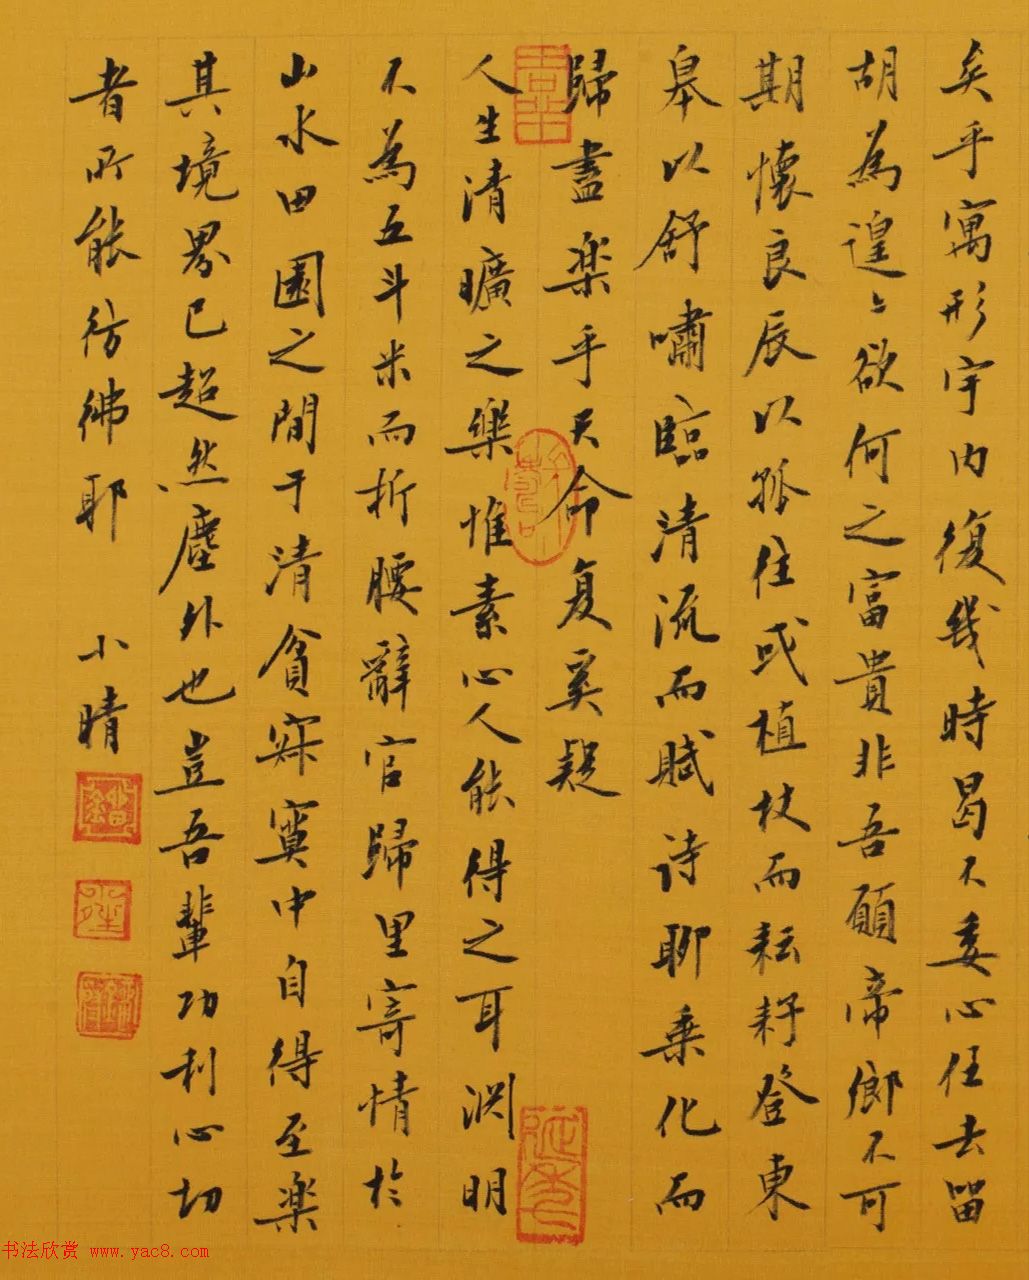 矣乎寓形宇内復幾時曷不委心任去留
胡為遑〻欲何之富貴非吾願帝鄉不可
期懷良辰以孤往或植杖而耘耔登東
皋以舒嘯臨清流而賦诗聊乗化而
歸盡楽乎天命复奚疑
人生清曠之樂惟素心人能得之耳渊明
不為五斗米而折腰辭官歸里寄情於
山水田園之間于清貧寂寞中自得至楽
其境界已超然塵外也豈吾輩功利心切
者所能彷彿耶 小晴
书法欣赏 www.yac8.com